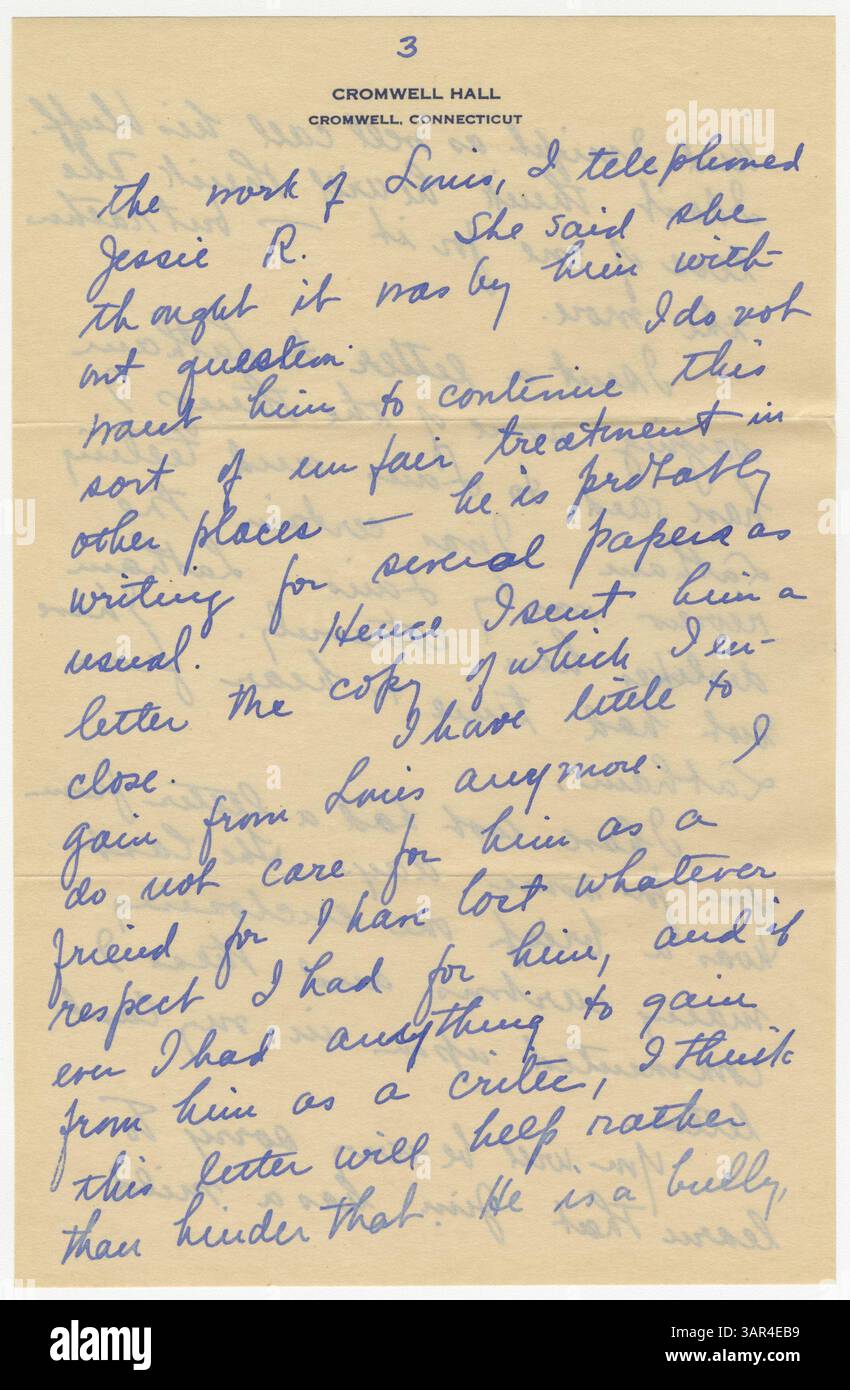 3
CROMWELL HALL
CROMWELL, CONNECTICUT
the work of Louis, I telephoned
Jessie R. She said she
thought it was by him with-
out question. I do not
want him to continue this
sort of unfair treatment in
other places — he is probably
writing for several papers as
usual. Hence I sent him a
letter the copy of which I en-
close. I have little to
gain from Louis anymore. I
do not care for him as a
friend for I have lost whatever
respect I had for him, and if
ever I had anything to gain
from him as a critic, I think
this letter will help rather
than hinder that. He is a bully,
alamy
Image ID: 3AR4EB9
www.alamy.com